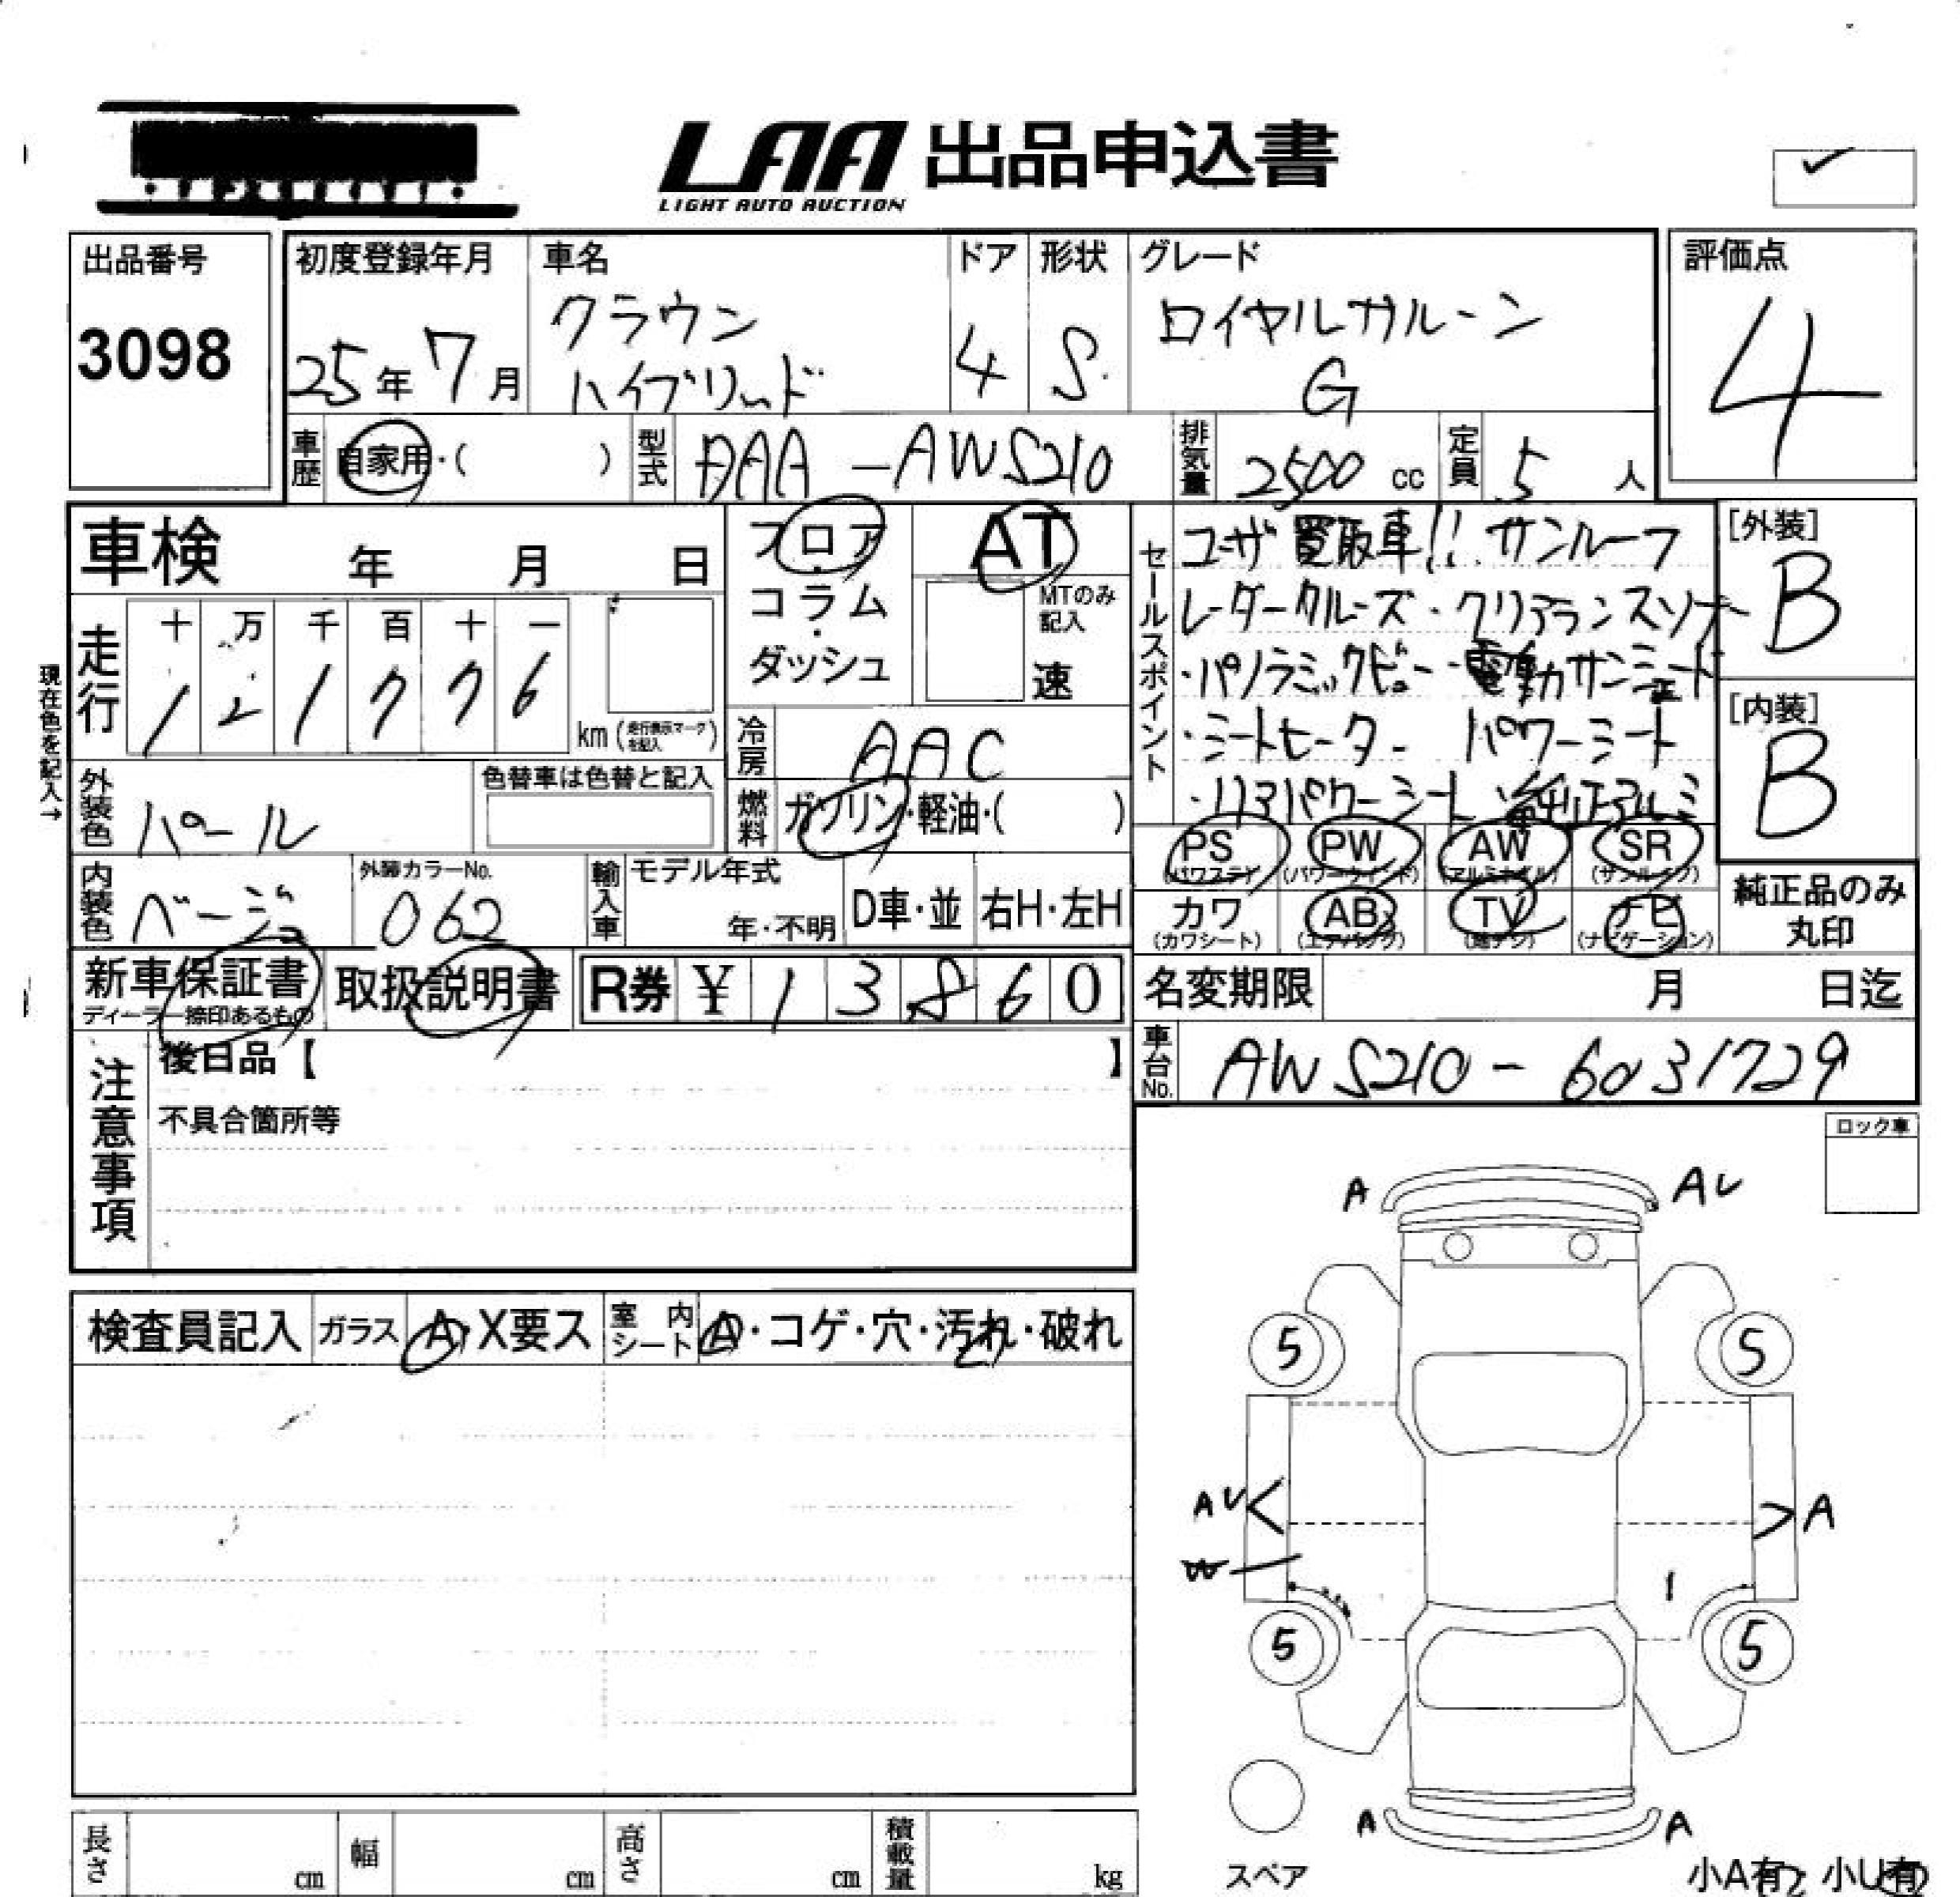 LAA 出品申込書
LIGHT AUTO AUCTION
出品番号
3098
初度登録年月
25年 7月
車名
クラウン
ハイブリッド
ドア
4
形状
S
グレード
ロイヤルサルーン
G
評価点
4
車歴 自家用・( )
型式 DAA-AWS210
排気量 2500 cc
定員 5 人
車検 年 月 日
走行
十 万 千 百 十 一
1 2 1 7 7 6
km(走行表示マークを記入)
現在色を記入→
フロア
・
コラム
・
ダッシュ
AT
MTのみ
記入
速
冷房 AAC
燃料 ガソリン・軽油・( )
外装色 パール
色替車は色替と記入
内装色 ベージュ
外装カラーNo.
062
輸入車
モデル年式
年・不明
D車・並
右H・左H
セールスポイント
ユーザ買取車!! サンルーフ
レーダークルーズ・クリアランスソナー
・パノラミックビュー・電動サンシェード
・シートヒーター パワーシート
・リアパワーシート 純正アルミ
[外装]
B
[内装]
B
PS
(パワステ)
PW
(パワーウィンド)
AW
(アルミホイル)
SR
(サンルーフ)
カワ
(カワシート)
AB
(エアバック)
TV
(地デジ)
ナビ
(ナビゲーション)
純正品のみ
丸印
新車保証書
ディーラー捺印あるもの
取扱説明書
R券 ¥ 1 3 8 6 0
名変期限 月 日迄
車台No. AWS210-6031729
注意事項
後日品【 】
不具合箇所等
ロック車
検査員記入
ガラス A・X要ス
室内シート A・コゲ・穴・汚れ・破れ
A AU
5 5
AU A
W
1
5 5
A A
スペア
小A有 小U有
長さ cm
幅 cm
高さ cm
積載量 kg